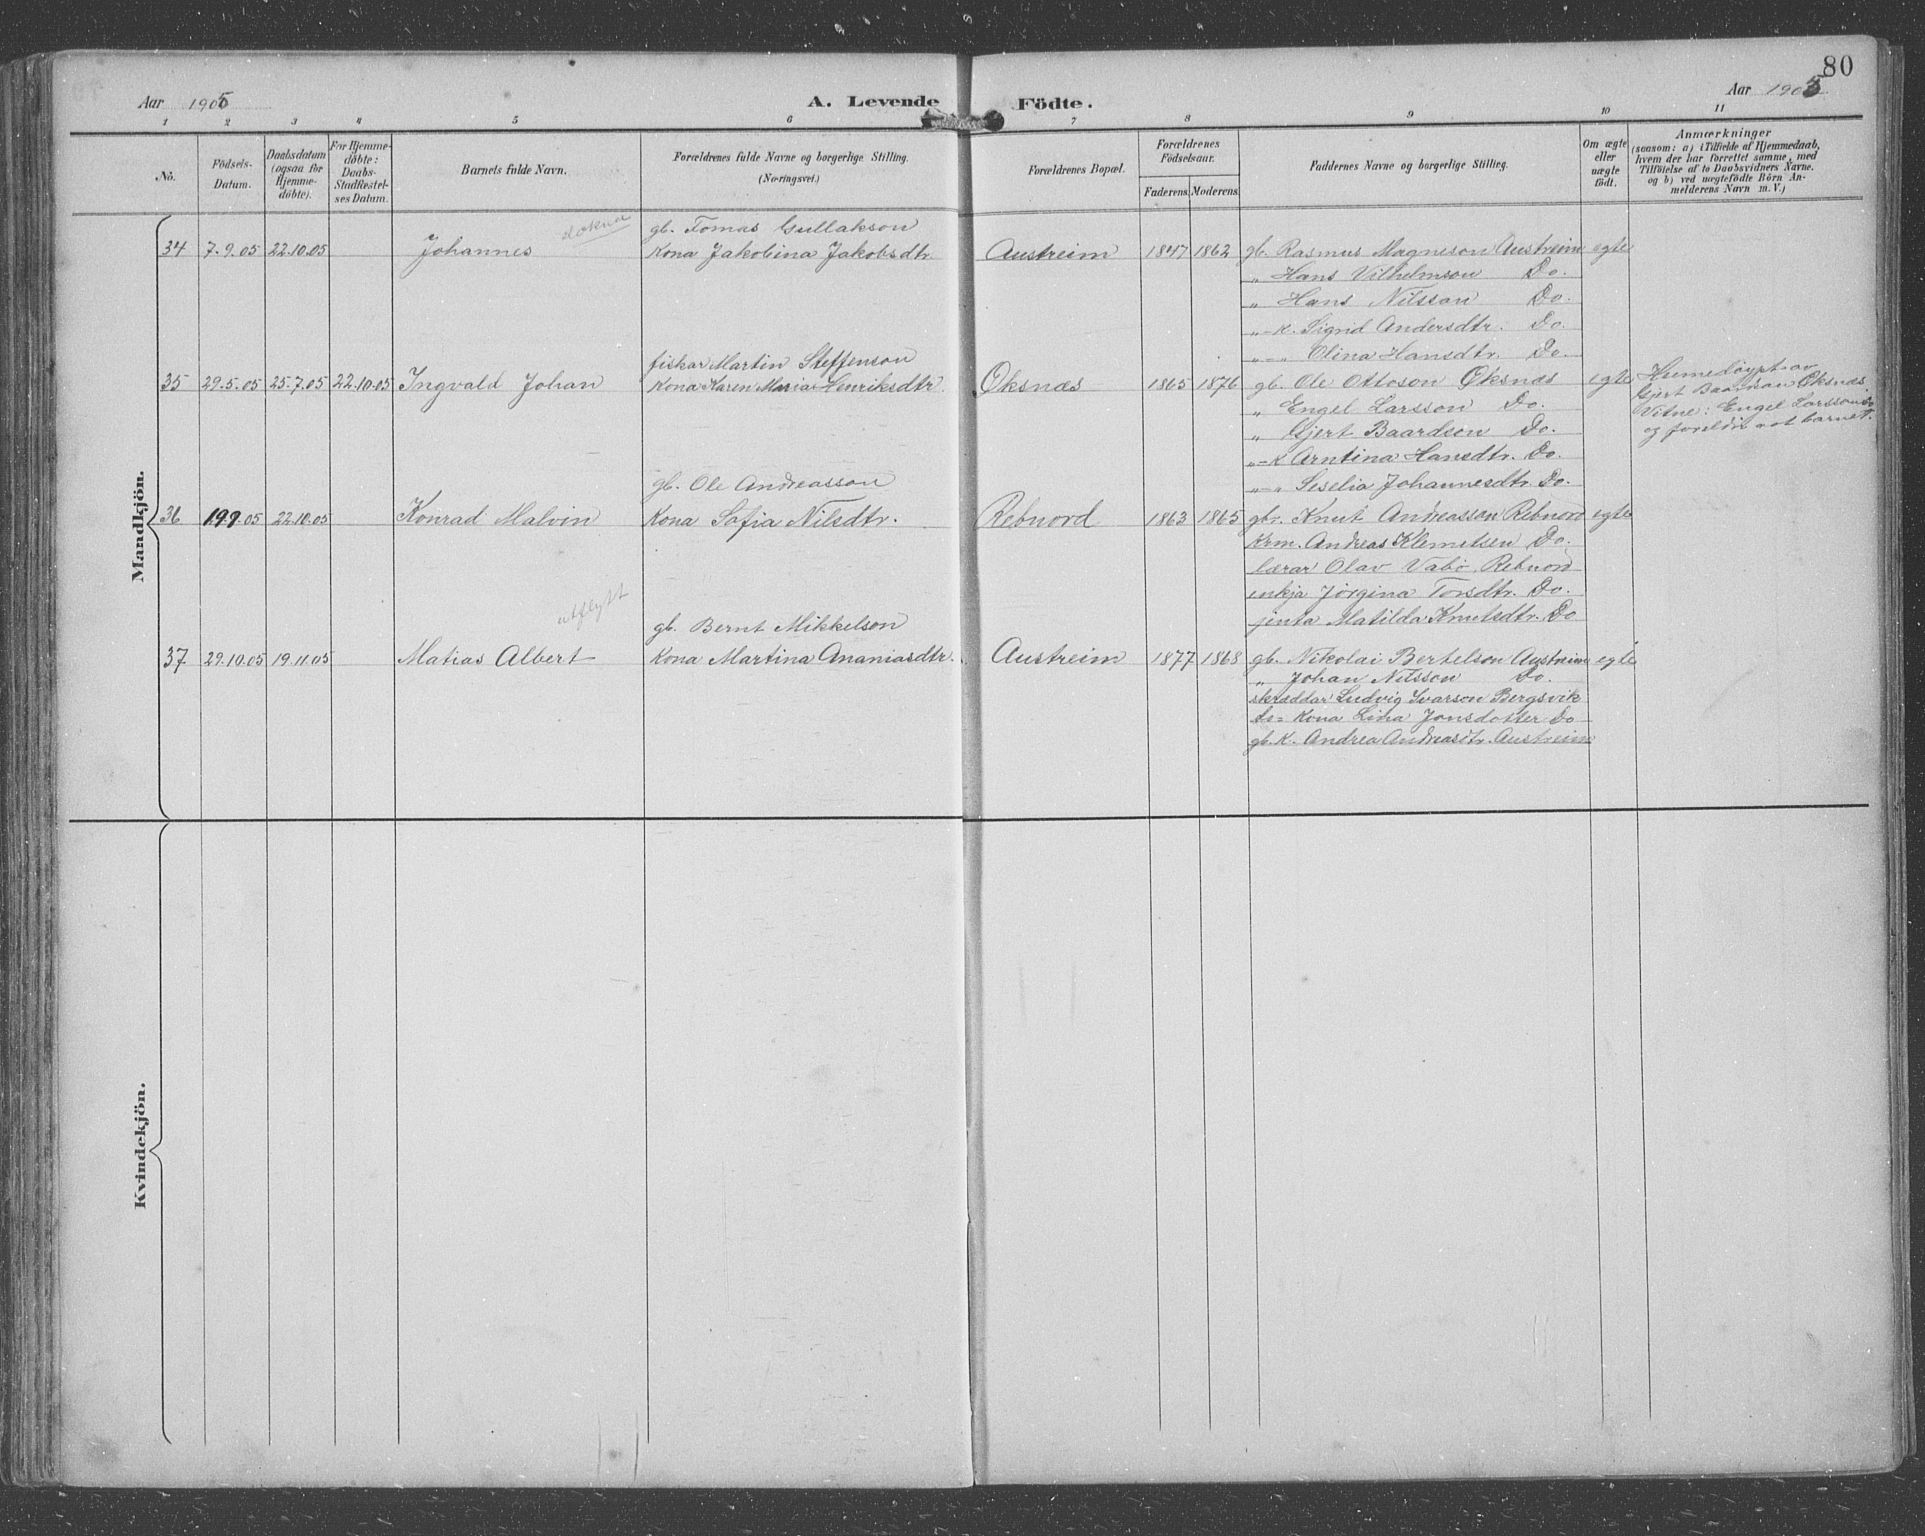 80
Aar 1905 A. Levende Födte. Aar 1905
1 2 3 4 5 6 7 8 9 10 11
No. Födsels-Datum. Daabsdatum (ogsaa for Hjemme-döbte). For Hjemme-döbte: Daabs-Stadfæstel-ses Datum. Barnets fulde Navn. Forældrenes fulde Navne og borgerlige Stilling. (Næringsvei.) Forældrenes Bopæl. Forældrenes Födselsaar. Faderens. Moderens. Faddernes Navne og borgerlige Stilling. Om ægte eller uægte födt. Anmærkninger (saasom: a) i Tilfælde af Hjemmedaab, hvem der har forrettet samme, med Tilföielse af to Daabsvidners Navne. og b) ved uægtefödte Börn An-melderens Navn m. V.)
Mandkjön.
gb. Tomas Gullakson
34 7.9.05 22.10.05 Johannes Kona Jakobina Jakobsdtr. Austreim 1847 1862 gb. Rasmus Magneson Austreim egte
„ Hans Vilhelmson Do.
„ Hans Nilsson Do.
„-K. Sigrid Andersdtr. Do.
„-„ Olina Hansdtr. Do.
fiskar Martin Steffenson
35 29.5.05 25.7.05 22.10.05 Ingvald Johan Kona Karen Maria Henriksdtr. Oksnæs 1865 1876 gb. Ole Ottoson Oksnæs egte
„ Engel Larsson Do.
„ Gjert Baardson Do.
„-K Arntina Hansdtr. Do.
„-„ Seselia Johannesdtr. Do.
Heimedöypt av
Gjert Baardson Oksnæs.
Vitne: Engel Larsson Do
og foreldri åt barnet.
gb. Ole Andreasson
36 19.9.05 22.10.05 Konrad Malvin Kona Sofia Nilsdtr. Rebnord 1863 1865 gbr. Knut Andreasson Rebnord egte
Krm. Andreas Klemetsen Do.
lærar Olav Vabö Rebnord
enkja Jörgina Torsdtr. Do.
jenta Matilda Knutsdtr. Do
utflytt
gb. Bernt Mikkelson
37 29.10.05 19.11.05 Matias Albert Kona Martina Ananiasdtr. Austreim 1877 1868 gb. Nikolai Bertelson Austreim egte
„ Johan Nilsson Do.
skræddar Ludvig Ivarson Bergsvik
Kona Lina Jonsdotter Do
gb. K. Andrea Andreasdtr. Austreim
Kvindekjön.